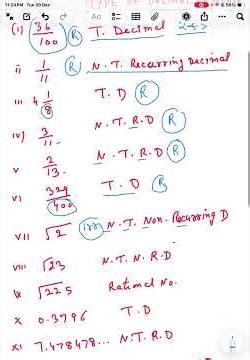 11:23 PM Tue 30 Dec 56%
TYPE OF DECIMAL
(i) 36/100 (R) T. Decimal
ii 1/11 (R) N.T. Recurring Decimal
iii 4 1/8 T.D (R)
iv) 3/11 N.T.R.D (R)
v 2/13 N.T.R.D (R)
vi 329/400 T.D (R)
vii √2 (Irr) N.T. Non. Recurring D
viii √23 N.T.N.R.D
ix √225 Rational No.
x 0.3796 T.D
xi 7.478478... N.T.R.D